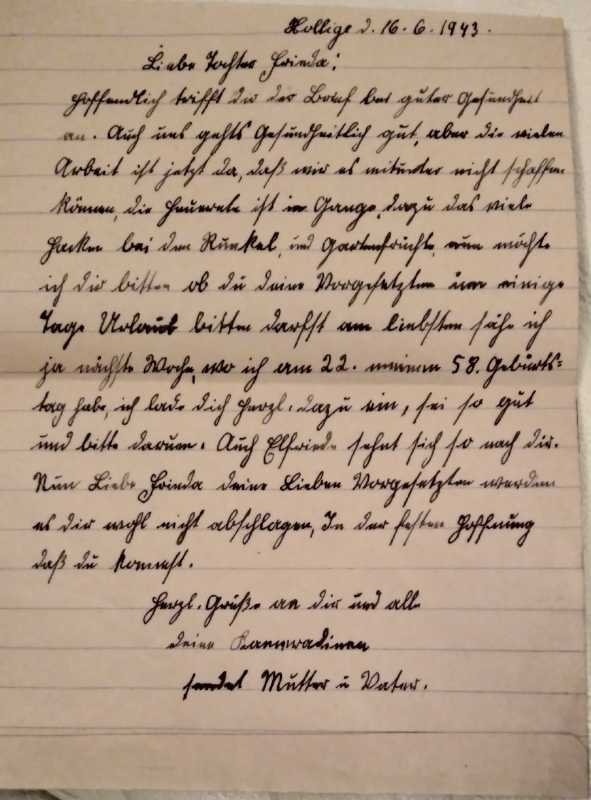 Hollige d. 16.6.1943.
Liebe Tochter Frieda!
Hoffendlich trifft du der Brief bei guter Gesundheit
an. Auch uns gehts Gesundheitlich gut, aber die vielen
Arbeit ist jetzt da, daß wir es mitunter nicht schaffen
können, die Heuernte ist in Gange, dazu das viele
Hacken bei den Runkel, und Gartenfrüchte, nun möchte
ich dir bitten ob du deine Vorgesetzten um einige
Tage Urlaub bitten darfst am liebsten sähe ich
ja nächste Woche, wo ich am 22. meinen 58. Geburts=
tag habe, ich lade dich herzl. dazu ein, sei so gut
und bitte darum. Auch Elfriede sehnt sich so nach dir.
Nun Liebe Frieda deine Lieben Vorgesetzten werden
es dir wohl nicht abschlagen, In der festen Hoffnung
daß du kommst.
Herzl. Grüße an dir und alle
deine Kammradinen
sendet Mutter u Vater.